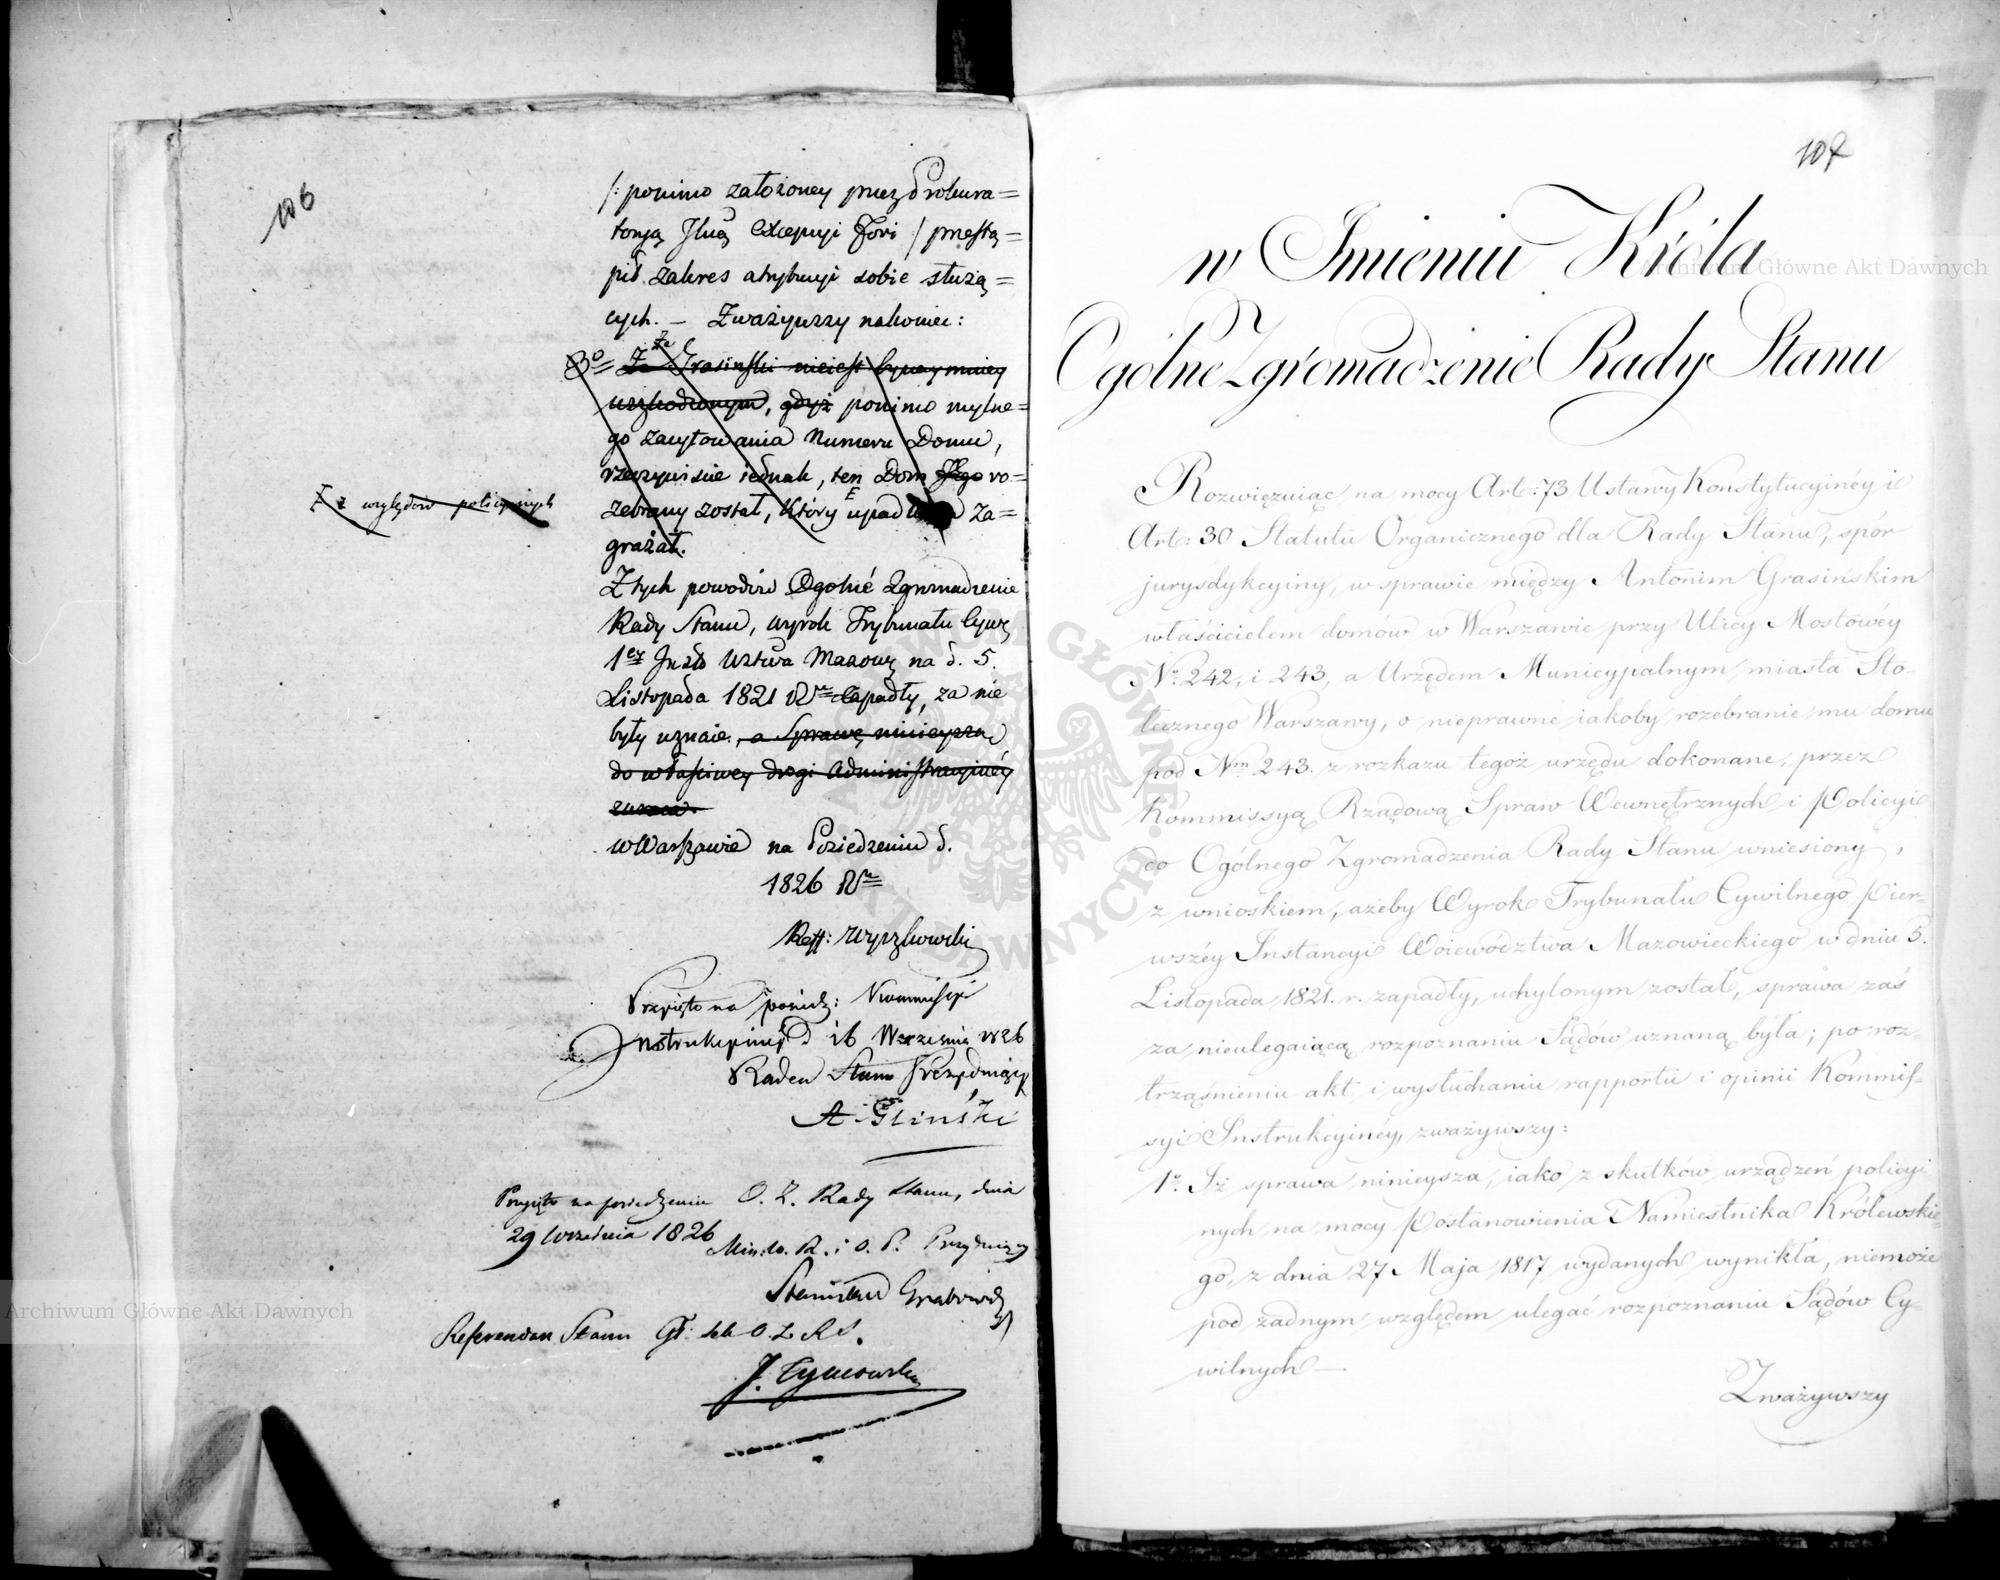 106
/: pomimo założoney przez Prokura=
toryą Jlną Excepcyi Fori / przestą=
pił zakres atrybucyi sobie służą=
cych. — Zważywszy nakoniec:
3º Że Grasinski nieiest bynaymniey
uszkodzonym, gdyż pomimo mylne=
go zacytowania Numeru Domu,
rzeczywiscie iednak, ten Dom Jego ro=
zebrany został, który upad za=
grażał.
z względów policyinych
Z tych powodów Ogolné Zgromadzenie
Rady Stanu, wyrok Trybunału Cywg
1ey Insto Wztwa Mazowg na d. 5.
Listopada 1821 Ru zapadły, za nie
były uznaie., a Sprawę ninieyszą
do właściwey drogi Administracyinéy
zwraca.
w Warszawie na Posiedzeniu d.
1826 Ru
Reff: Wyszkowski
Przyięto na posiedz: Kommissyi
Instrukcyiney d 16 Września 1826
Radca Stanu Prezyduiący
A Gliński
Przyięto na posiedzeniu O. Z. Rady Stanu, dnia
29 Września 1826
Min: W. R. i O. P. Prezyduiący
Stanisław Grabowski
Referendarz Stanu Gł: Sek O. Z. R S.
J. Tymowski
107
w Imieniu Króla
Ogólne Zgromadzenie Rady Stanu
Rozwięzuiąc na mocy Art: 73 Ustawy Konstytucyinéy i
Art: 30 Statutu Organicznego dla Rady Stanu, spór
jurysdykcyiny, w sprawie między Antonim Grasińskim
właścicielem domów w Warszawie przy Ulicy Mostowéy
No 242, i 243, a Urzędem Municypalnym miasta Sto-
łecznego Warszawy, o nieprawne iakoby rozebranie mu domu
pod Nm 243. z rozkazu tegoż urzędu dokonane, przez
Kommissyą Rządową Spraw Wewnętrznych i Policyi
do Ogólnego Zgromadzenia Rady Stanu wniesiony,
z wnioskiem, ażeby Wyrok Trybunału Cywilnego Pier-
wszéy Instancyi Woiewództwa Mazowieckiego w dniu 5.
Listopada 1821. r. zapadły, uchylonym został, sprawa zaś
za nieulegaiącą rozpoznaniu Sądów uznaną była; po roz-
trząśnieniu akt i wysłuchaniu rapportu i opinii Kommis-
syi Instrukcyinéy, zważywszy:
1º. Iż sprawa ninieysza, iako z skutków urządzeń policyi
nych na mocy Postanowienia Namiestnika Królewskie
go, z dnia 27 Maja 1817 wydanych wynikła, niemoże
pod żadnym względem ulegać rozpoznaniu Sądów Cy-
wilnych —
Zważywszy
Archiwum Główne Akt Dawnych
Archiwum Główne Akt Dawnych
ARCHIWUM GŁÓWNE AKT DAWNYCH